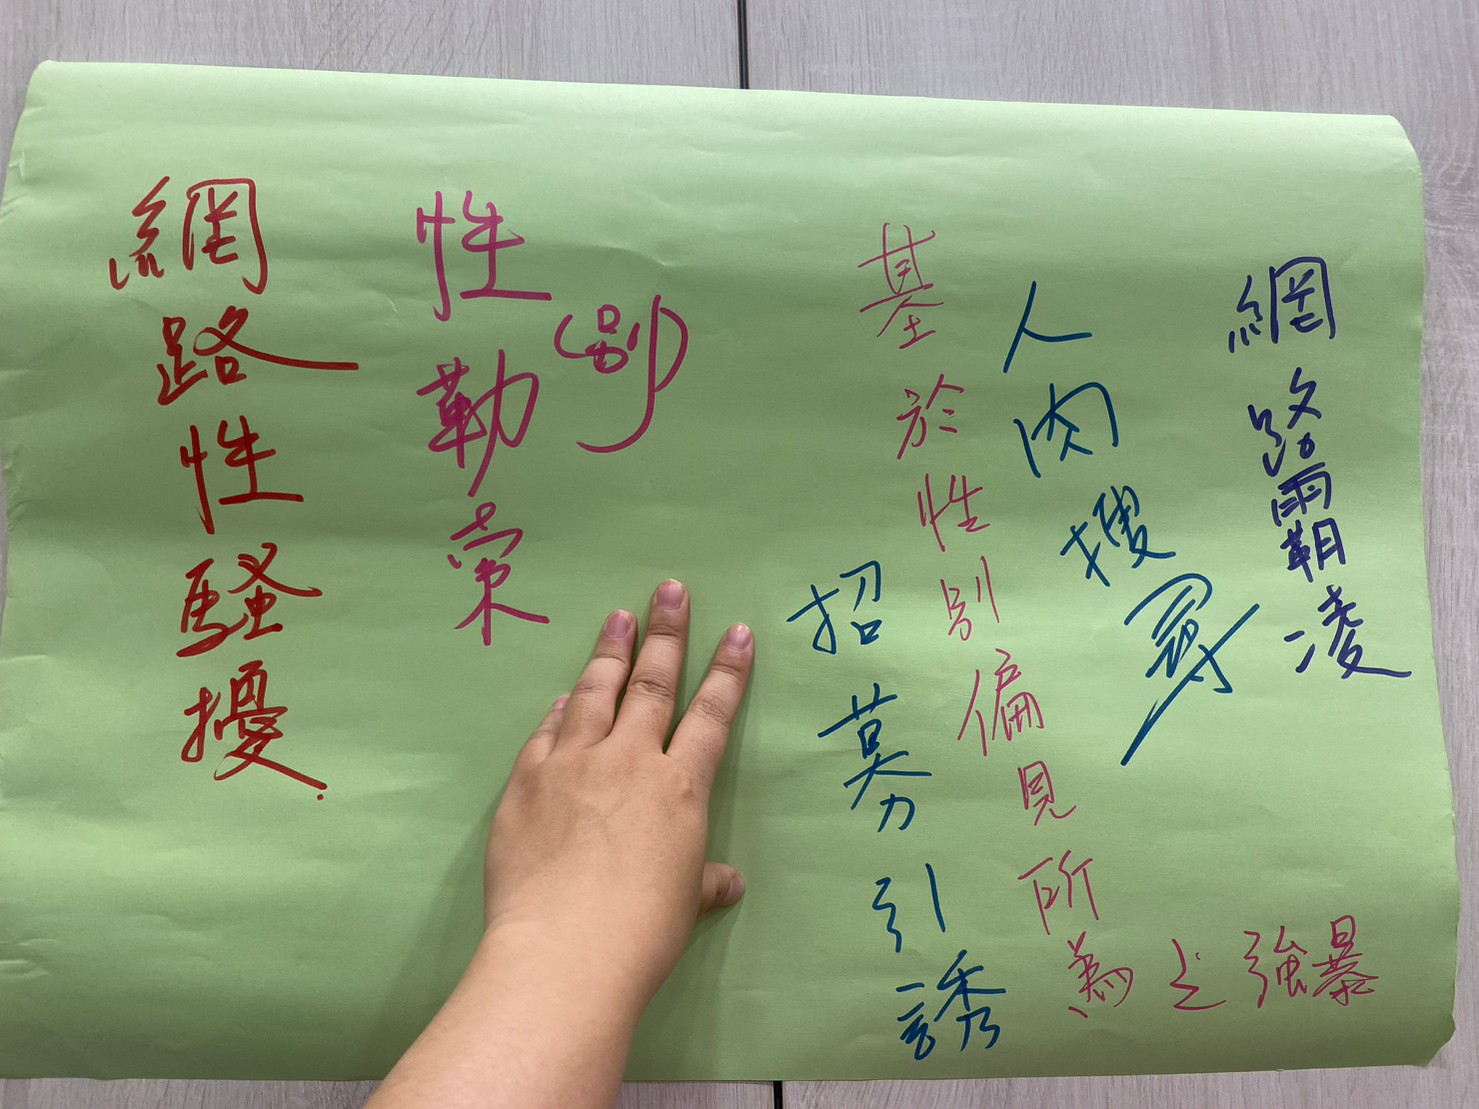 網路霸凌
人肉搜尋
基於性別偏見所為之強暴
招募引誘
性(別)勒索
網路性騷擾.